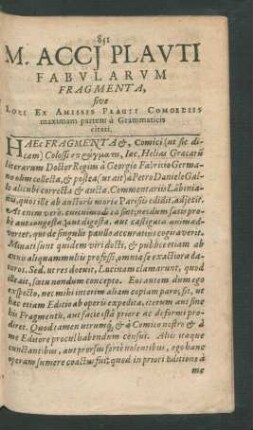 851
M. ACCJ PLAVTI
FABVLARVM
FRAGMENTA,
sive
LOCI EX AMISSIS PLAUTI COMOEDIIS
maximam partem à Grammaticis
citati.
HAEc FRAGMENTA &, Comici (ut sic di-
cam) Colossi Iac. Helias Gracarũ
literarum Doctor Regius à Georgio Fabricio Germa-
no olim collecta, & postea (ut ait) à Petro Daniele Gal-
lo alicubi correcta & aucta. Commentariis Lâbinia-
nis, quos ille ab auctoris morte Parisiis edidit, adjecit.
At enim verò, cum neque ea sint, neque dum satis pro-
bè aut congesta, aut digesta, aut castigata animad-
verteret, qui de singulis paullo accuratius cognoverit.
Minati sunt quidem viri docti, & publicè etiam ab
annis aliquam multis professi, omnia se exactiora da-
turos. Sed, ut res docuit, Lucinam clamarunt, quod
ille ait, sine nondum conceptu. Eos autem dum ego
exspecto, nec mihi interim aliam copiam paro, fit, ut
hac etiam Editio ab operis expedita, iterum aut sine
his Fragmentis, aut satis esto priore ac deformi pro-
dierit. Quod tamen nirumque, & à Comico nostro & à
me Editore procul habendum censui. Aliis itaque
cunctantibus, aut prorsus fortè nolentibus, ego hanc
operam sumere coactus fui; quod in priori Editione à
me